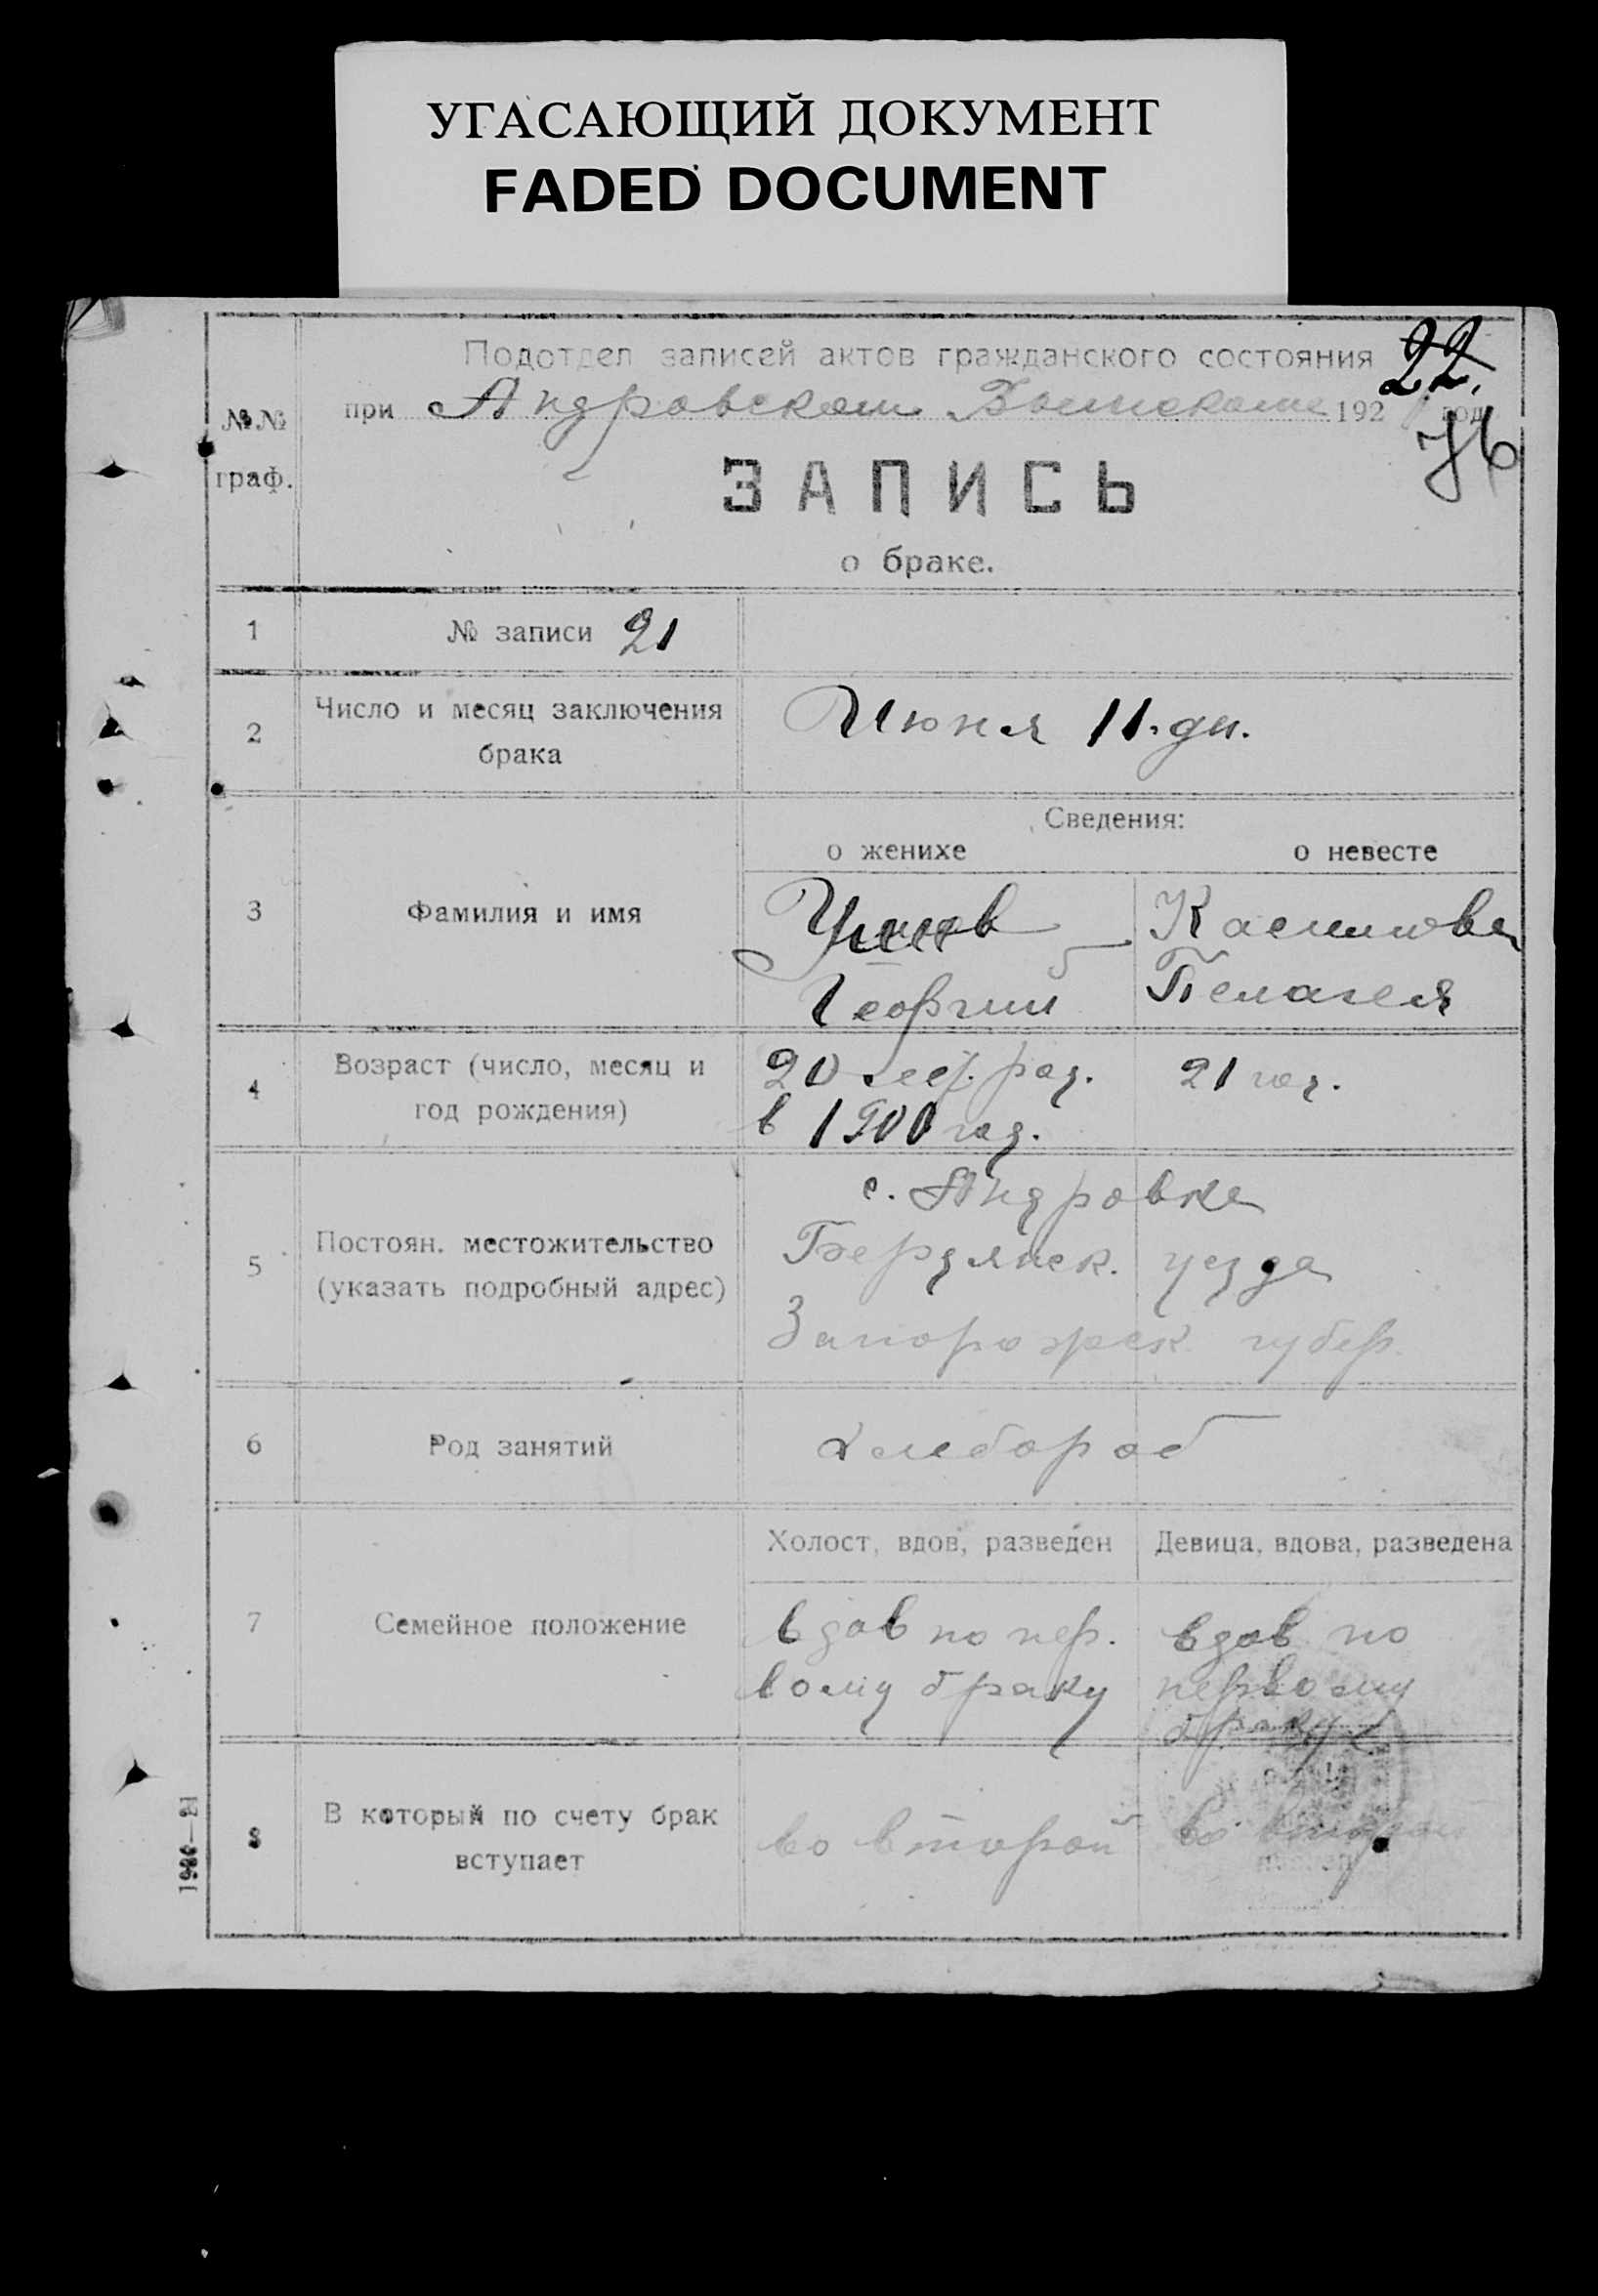 УГАСАЮЩИЙ ДОКУМЕНТ
FADED DOCUMENT
Подотдел записей актов гражданского состояния
22.
при Андровском Волисполкоме 192 год
76
№№
граф.
ЗАПИСЬ
о браке.
1 № записи 21
2 Число и месяц заключения
брака
Июня 11. дн.
Сведения:
о женихе о невесте
3 Фамилия и имя
Касимова
Георгий Пелагея
4 Возраст (число, месяц и
год рождения)
20 лет. род. 21 год.
в 1900 год.
5 Постоян. местожительство
(указать подробный адрес)
с. Андровка
Бердянск. уезда
Запорожск. губер.
6 Род занятий хлебороб
7 Семейное положение
Холост, вдов, разведен Девица, вдова, разведена
вдов по пер. вдов по
вому браку первому
браку
8 В который по счету брак
вступает
во второй во второй